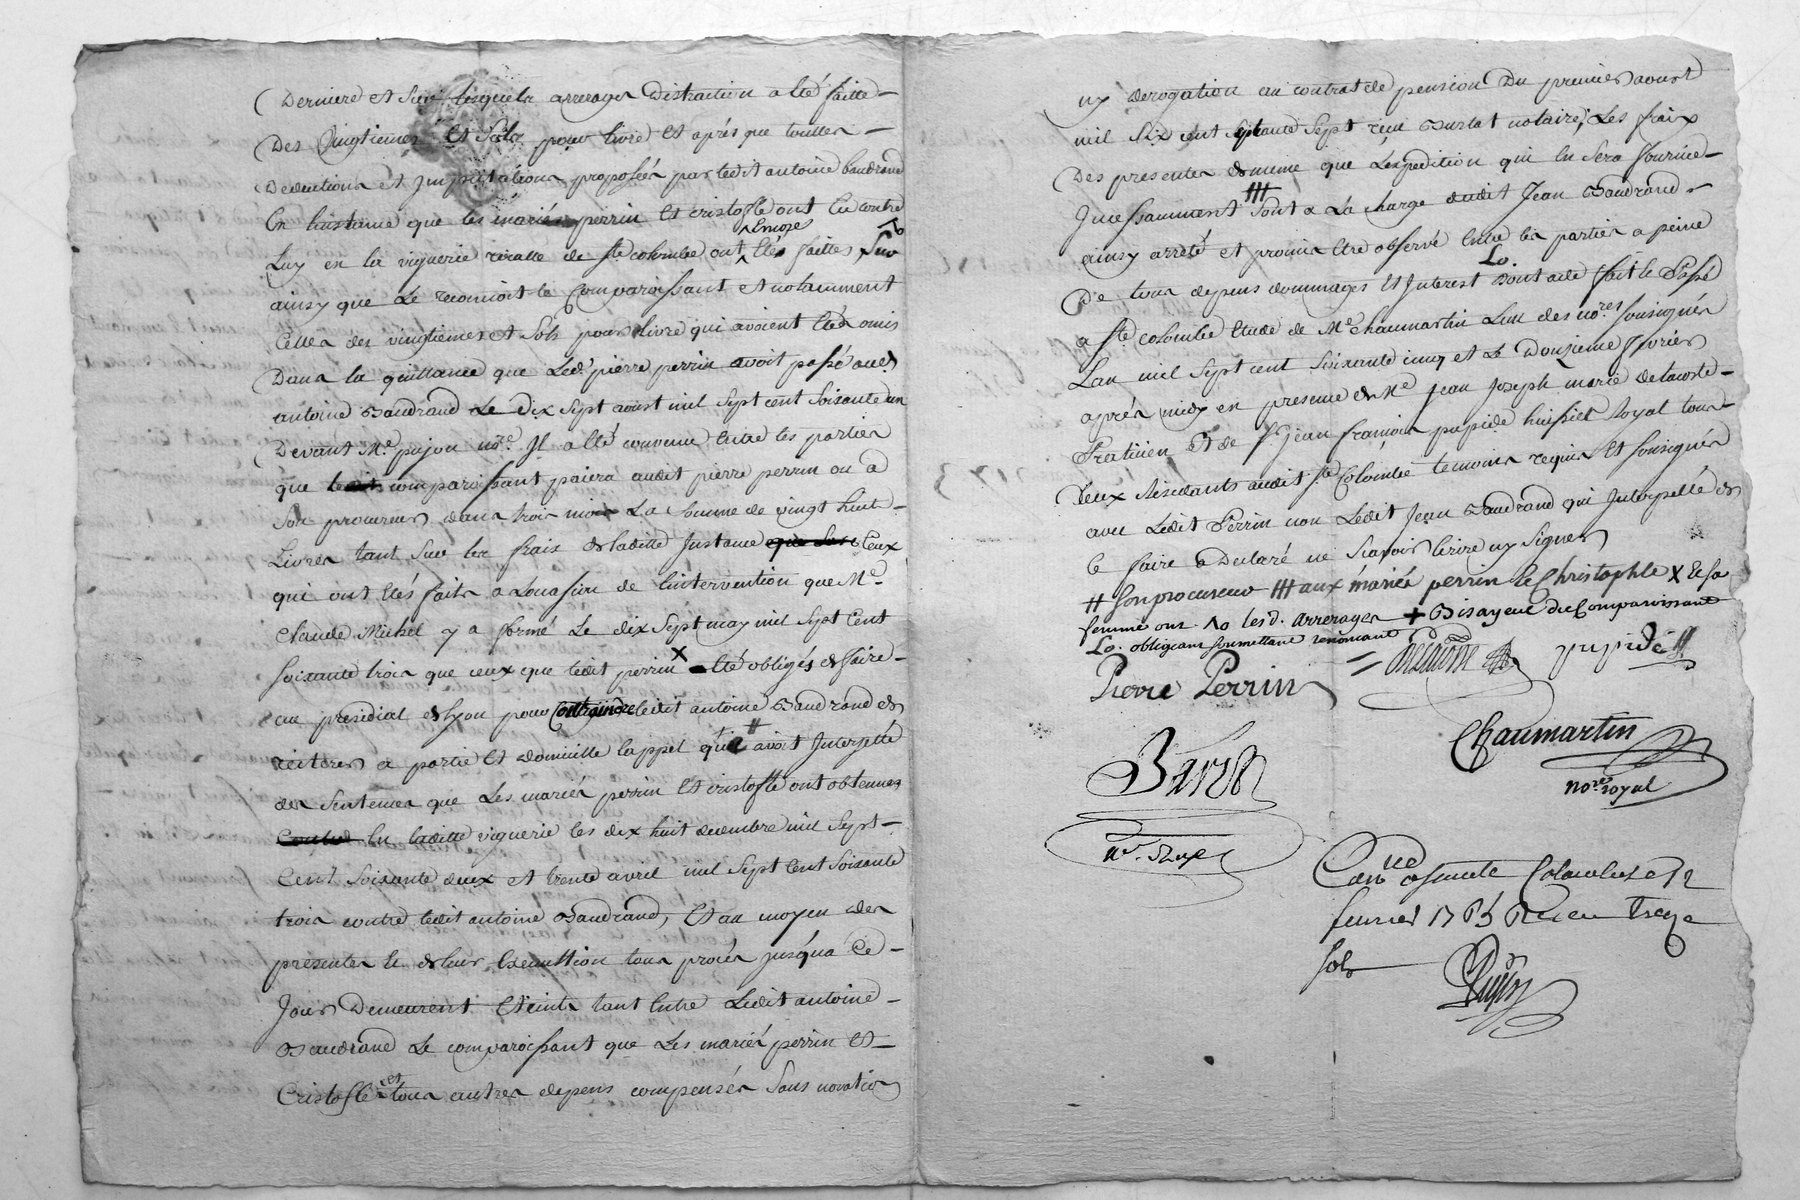 Derniere et sur lesquels arrerages Distraction a été faitte
Des Vingtiemes et Sols pour livre et aprés que touttes
Deductions et Imputations proposées par ledit antoine baudrand
En linstance que les mariés perrin et cristofle ont eu contre
Encore
Luy en la viguerie royalle de ste colombe, ont étés faittes,
ainsy que Le reconnoit le Comparoissant et notamment
Celles des vingtiemes et Sols pour livre qui avoient étés omis
Dans la quittance que Led. pierre perrin avoit passé aud.
antoine Baudrand Le dix Sept aoust mil Sept cent Soixante un
Devant Me. pujon nore. Il a été convenu Entre les parties
que le comparoissant paiera audit pierre perrin ou à
Son procureur dans trois mois La Somme de vingt huit
Livres tant Sur les frais de laditte Instance Ceux
qui ont étés faits a Loccasion de Lintervention que Me.
Claude Michel y a formé Le dix Sept may mil Sept Cent
Soixante trois que ceux que ledit perrin X été obligés de faire
au présidial de lyon pour Contraindre ledit antoine Baudrand de
réiterer a partie et domicille lappel que # avoit Interjetté
des Sentences que Les mariés perrin et cristofle ont obtenues
en laditte viguerie les dix huit decembre mil Sept
Cent Soixante deux et trente avril mil Sept Cent Soixante
trois contre ledit antoine Baudrand, et au moyen des
présentes et de leur Execution tous procés jusqua Ce
Jour Demeurent Eteints tant Entre Ledit antoine
Baudrand Le comparoissant que Les mariés perrin et
et
Cristofle tous autres depens compensés Sans novation
ny derogation au contrat de pension Du premier aoust
mil Six cent Septante Sept reçu Burlat notaire, Les fraix
Des presentes de meme que Lexpedition qui en Sera fournie
###
Incessamment Sont a La charge dudit Jean Baudrand
ainsy arrété et promis Etre observé Entre les parties a peine
Lo.
De tous depens dommages et Interest Dont acte fait et Passé
a ste colombe Etude de Me. chaumartin Lun des nores. Soussignés
Lan mil Sept cent Soixante cinq et Le Douzieme fevrier
aprés midy en presence de Me. jean joseph marie delacoste
Praticien et de Sr. jean françois pupide huissier Royal tous
Deux Residants audit ste Colombe temoins requis et Soussignés
avec Ledit Perrin non Ledit Jean Baudrand qui Interpellé de
le faire a Declaré ne Sçavoir Ecrire ny Signer
# Son procureur ### aux mariés perrin et Christophle X et sa
femme ont. lesd. arrerages + Bisayeul du Comparoissant
Lo. obligeant soumettant renonçant
Pierre Perrin
Delacoste pupide
Chaumartin
nore royal
Conlle a Sainte Colombe le 12
fevrier 1765 Reçu Treze
Sols